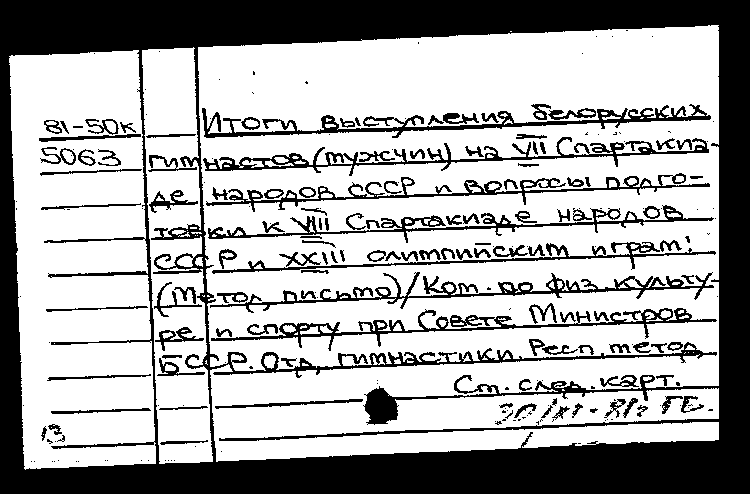 81-50к Итоги выступления белорусских
5063 гимнастов (мужчин) на VII Спартакиа-
де народов СССР и вопросы подго-
товки к VIII Спартакиаде народов
СССР и XXIII олимпийским играм:
(Метод. письмо) / Ком. по физ. культу-
ре и спорту при Совете Министров
БССР. Отд. гимнастики. Респ. метод.
См. след. карт.
13 30/XI-81г